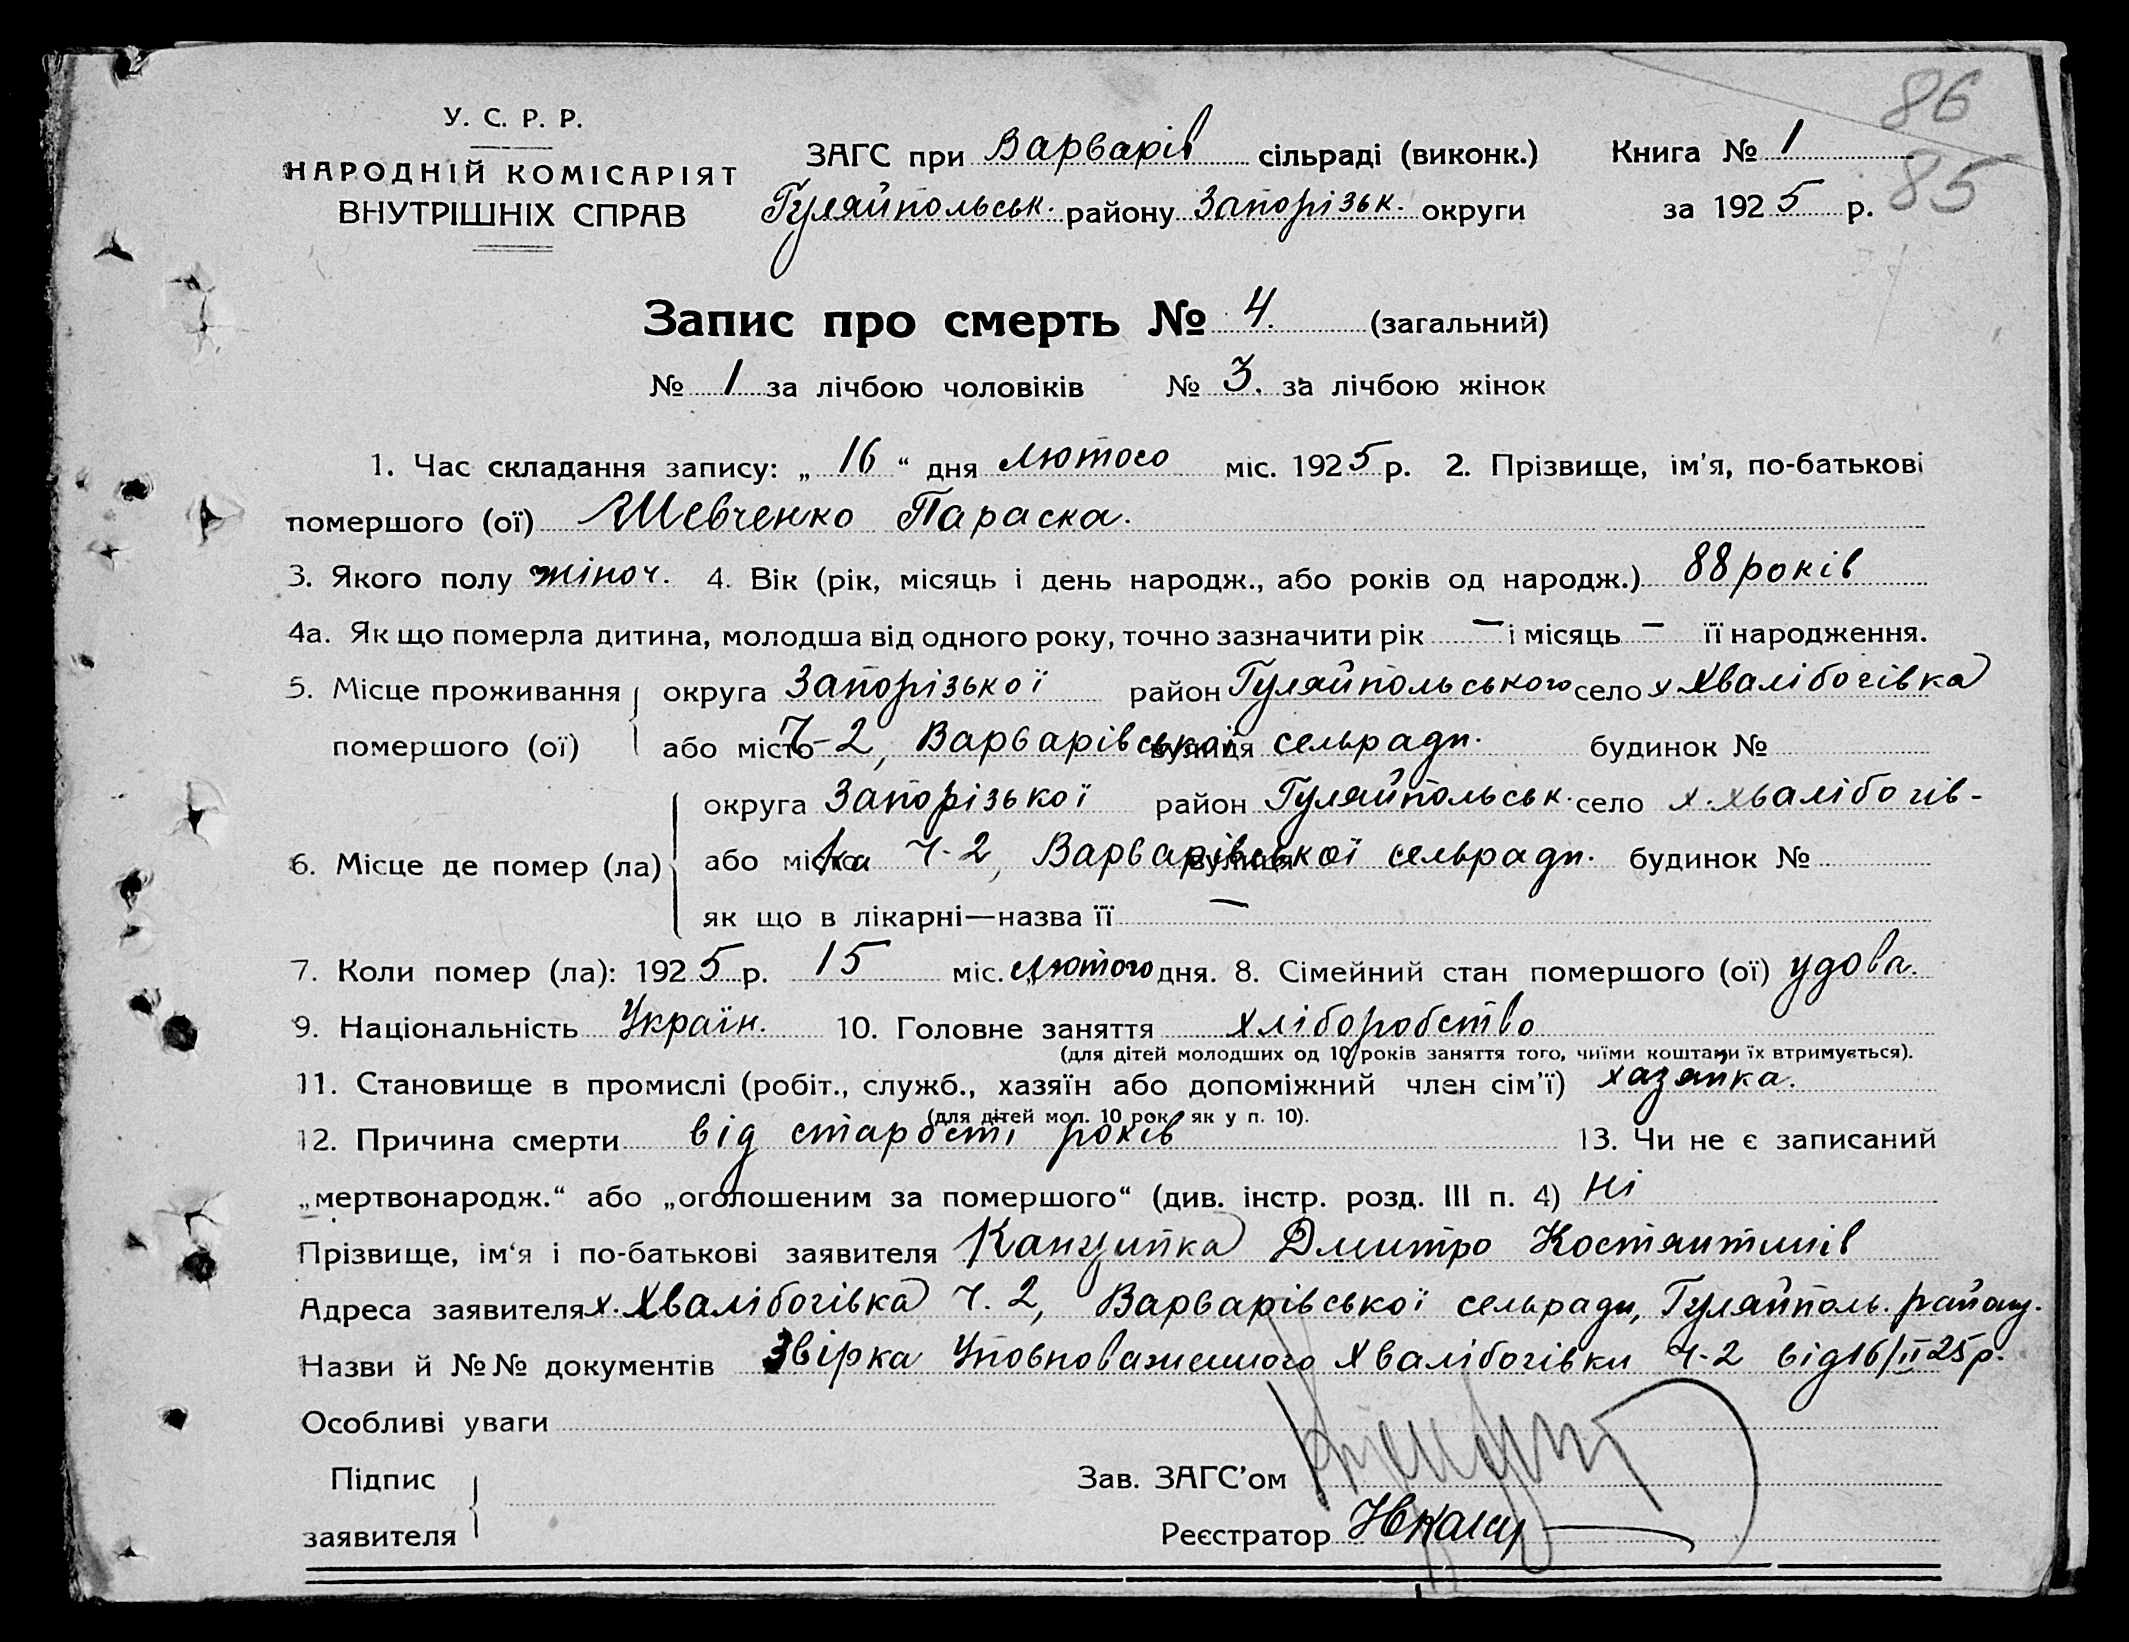 86
85
У. С. Р. Р.
НАРОДНІЙ КОМІСАРІЯТ
ВНУТРІШНІХ СПРАВ
ЗАГС при Варварів сільраді (виконк.) Книга № 1
Гуляйпольськ. району Запорізьк. округи за 1925 р.
Запис про смерть № 4. (загальний)
№ 1 за лічбою чоловіків № 3. за лічбою жінок
1. Час складання запису: „ 16 “ дня лютого міс. 1925 р. 2. Прізвище, ім'я, по-батькові
помершого (ої) Шевченко Параска.
3. Якого полу жіноч. 4. Вік (рік, місяць і день народж., або років од народж.) 88 років
4а. Як що померла дитина, молодша від одного року, точно зазначити рік — і місяць — її народження.
5. Місце проживання округа Запорізької район Гуляйпольського село х Хвалібогівка
помершого (ої) або місто Ч-2, Варварівської вулиця сельради. будинок №
округа Запорізької район Гуляйпольськ. село х. хвалібогів-
6. Місце де помер (ла) або місто ка Ч-2, Варварівської вулиця сельради. будинок №
як що в лікарні—назва її —
7. Коли помер (ла): 1925 р. 15 міс. лютого дня. 8. Сімейний стан помершого (ої) удова.
9. Національність Україн. 10. Головне заняття хліборобство
(для дітей молодших од 10 років заняття того, чиїми коштами їх втримується).
11. Становище в промислі (робіт., служб., хазяїн або допоміжний член сім'ї) хазяйка.
(для дітей мол. 10 рок. як у п. 10).
12. Причина смерти від старості років 13. Чи не є записаний
„мертвонародж.“ або „оголошеним за помершого“ (див. інстр. розд. III п. 4) Ні
Прізвище, ім'я і по-батькові заявителя Дмитро Костянтинів
Адреса заявителя х. Хвалібогівка Ч. 2, Варварівської сельради, Гуляйполь. району.
Назви й №№ документів Звірка Уповноваженного Хвалібогівки Ч-2 від 16/II 25 р.
Особливі уваги
Підпис
заявителя
Зав. ЗАГС'ом
Реєстратор